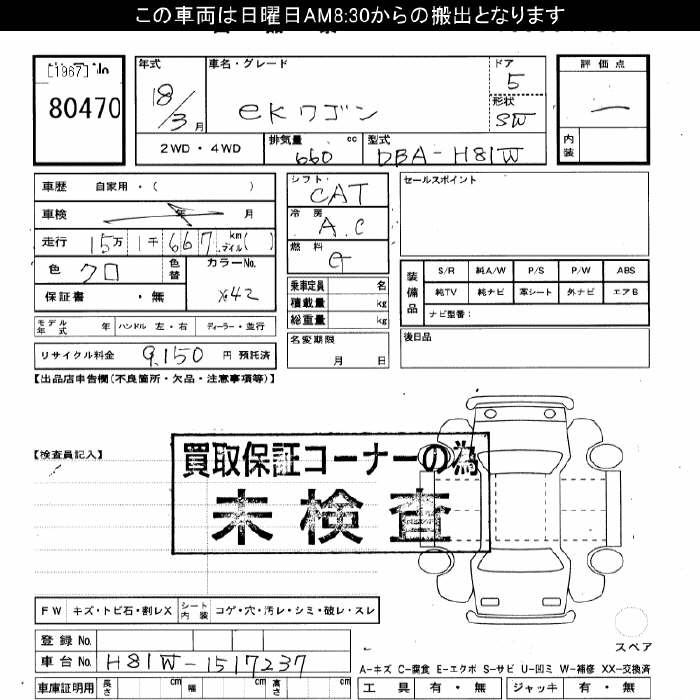 この車両は日曜日AM8:30からの搬出となります
[1967] No
80470
年式
18/3月
車名・グレード
eKワゴン
ドア
5
形状
SW
評価点
―
内装
2WD・4WD
排気量 cc
660
型式
DBA-H81W
車歴 自家用・( )
車検 年 月
走行 15万 1千 667 km マイル( )
色 クロ
色替
カラーNo.
X42
保証書 ・無
モデル年式 年 ハンドル 左・右 ディーラー・並行
リサイクル料金 9,150 円 預託済
シフト
CAT
冷房
A.C
燃料
G
乗車定員 名
積載量 kg
総重量 kg
名変期限
月 日
セールスポイント
装備品
S/R 純A/W P/S P/W ABS
純TV 純ナビ 革シート 外ナビ エアB
ナビ型番:
後日品
【出品店申告欄(不良箇所・欠品・注意事項等)】
【検査員記入】
買取保証コーナーの為
未検査
FW キズ・トビ石・割レX シート内装 コゲ・穴・汚レ・シミ・破レ・スレ
登録No.
車台No. H81W-1517237
車庫証明用 長さ cm 幅 cm 高さ cm
スペア
A-キズ C-腐食 E-エクボ S-サビ U-凹ミ W-補修 XX-交換済
工具 有・無 ジャッキ 有・無